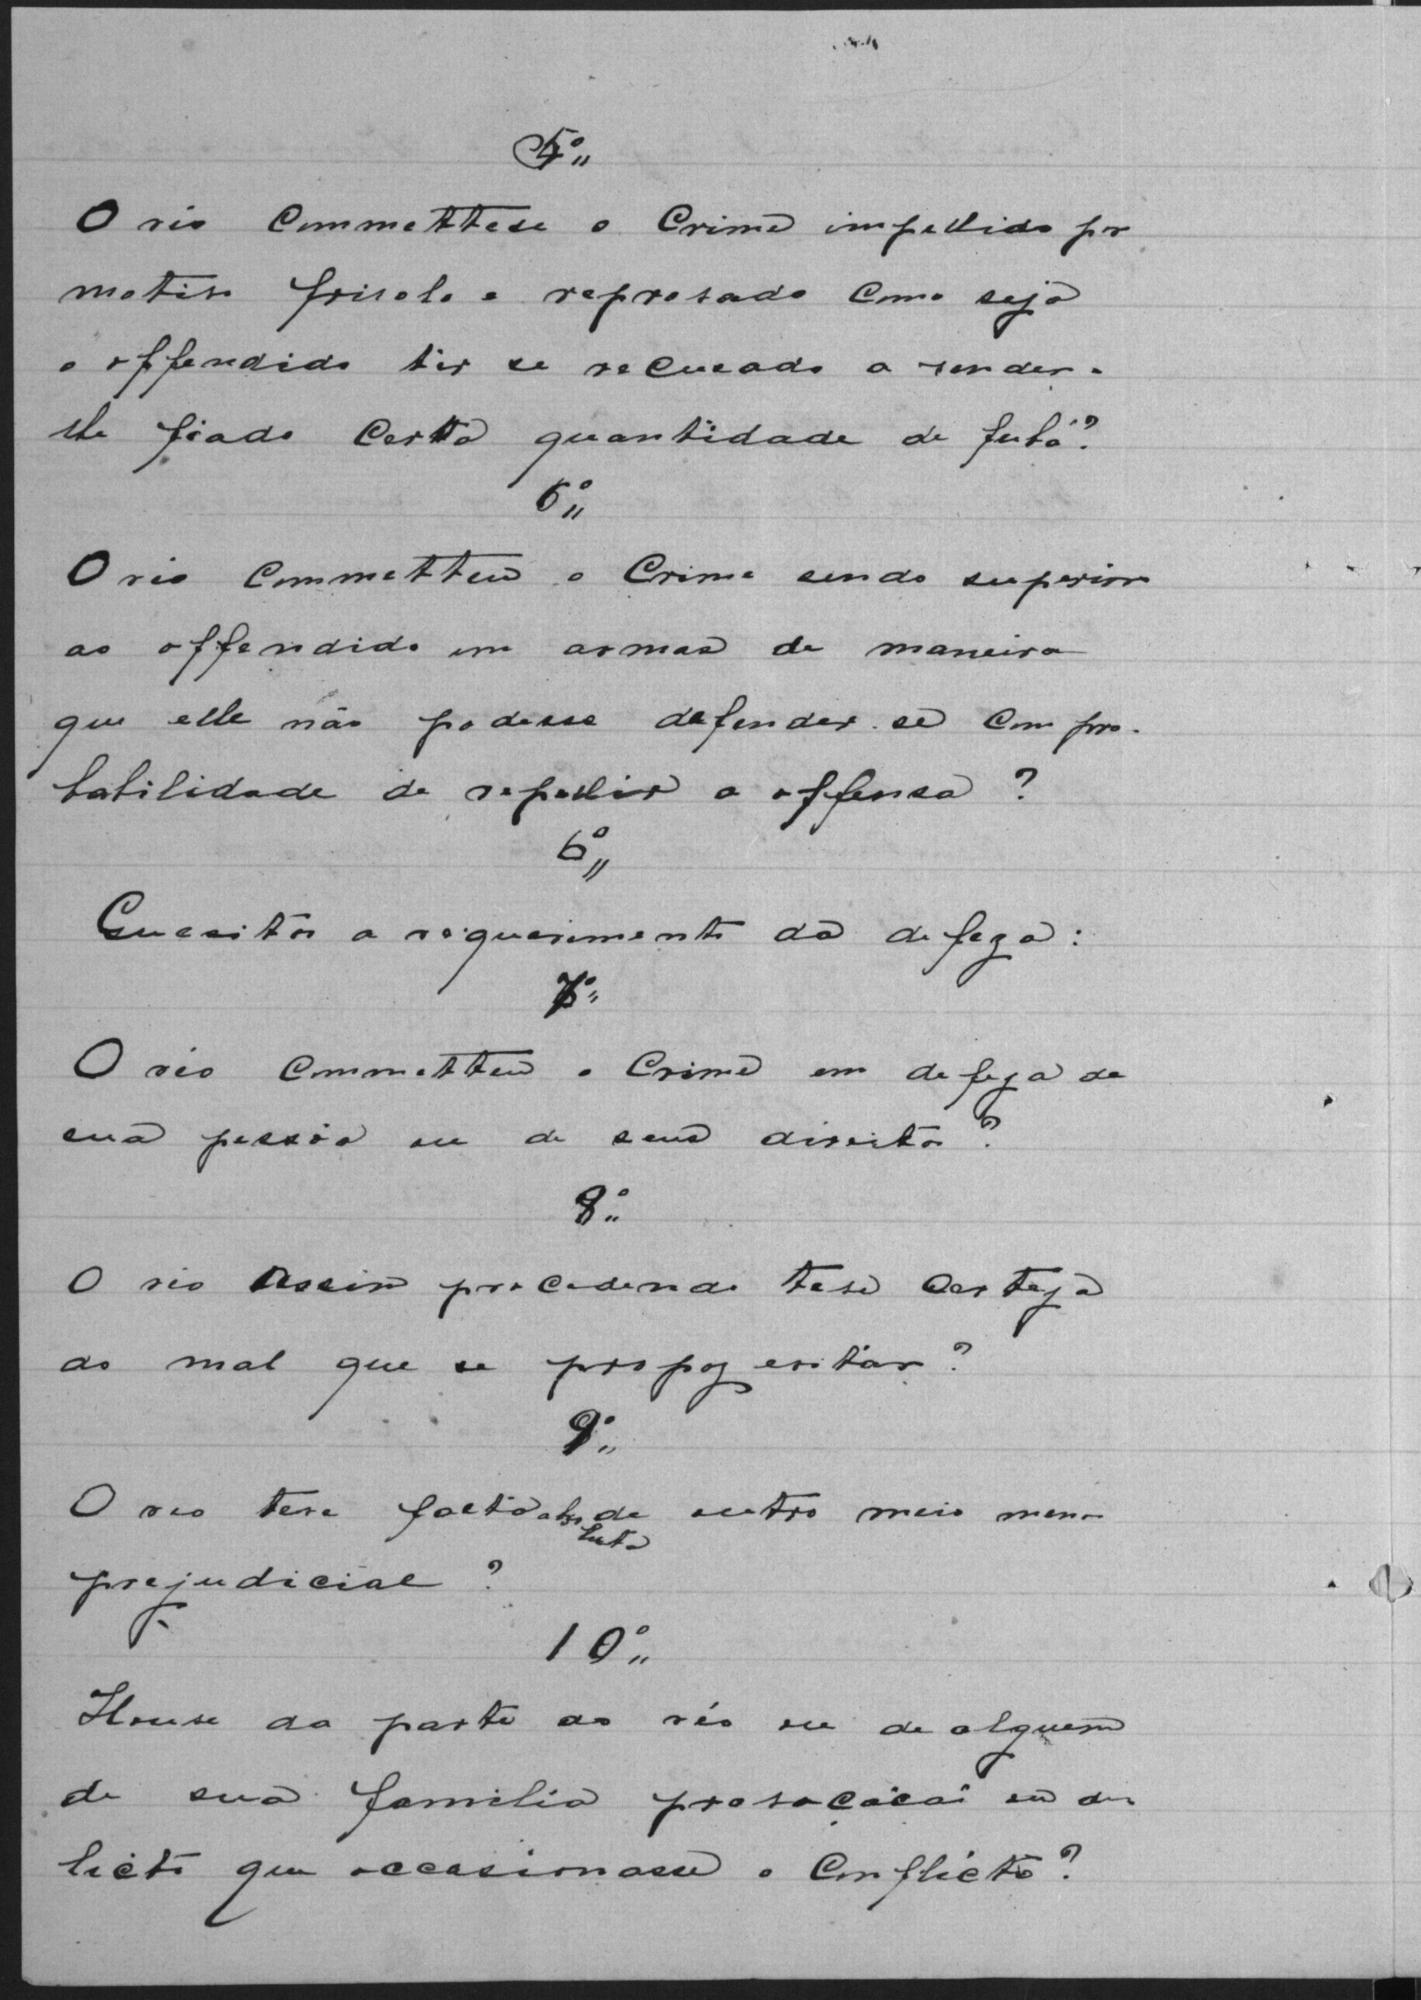 5º
O réo commetteu o crime impellido por
motivo frivolo e reprovado como seja
o offendido ter se recusado a vender-
lhe fiado certa quantidade de fubá?
6º
O réo commetteu o crime sendo superior
ao offendido em armas de maneira
que elle não podesse defender-se com pro-
babilidade de repellir a offensa?
6º
Quesitos a requerimento da defeza:
7º
O réo commetteu o crime em defeza de
sua pessoa ou de seus direitos?
8º
O réo assim procedendo teve certeza
do mal que se propoz evitar?
9º
O reo teve falta absoluta de outro meio menos
prejudicial?
10º
Houve da parte do réo ou de alguem
de sua familia provocação ou de-
licto que occasionasse o conflicto?